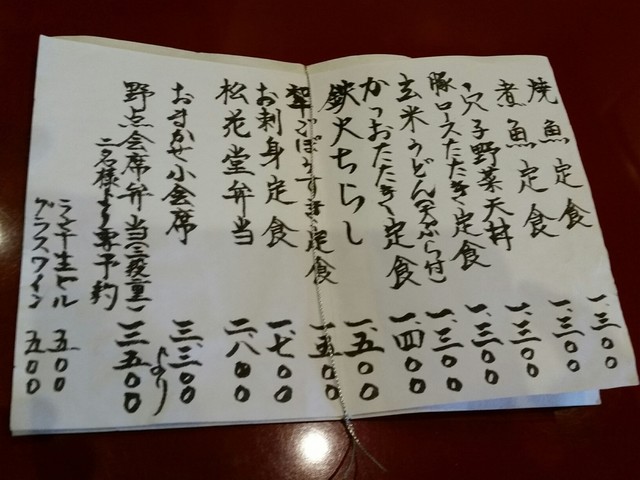 焼魚定食 一、三〇〇
煮魚定食 一、三〇〇
穴子野菜天丼 一、三〇〇
豚ロースたたき定食 一、三〇〇
玄米うどん(天ぷら付) 一、三〇〇
かつおたたき定食 一、四〇〇
鉄火ちらし 一、五〇〇
ごぼうすき定食 一、五〇〇
お刺身定食 一、七〇〇
松花堂弁当 二、八〇〇
おまかせ小会席 三、三〇〇より
野点会席弁当(三段重) 三、五〇〇
二名様より要予約
ランチ生ビール 五〇〇
グラスワイン 五〇〇